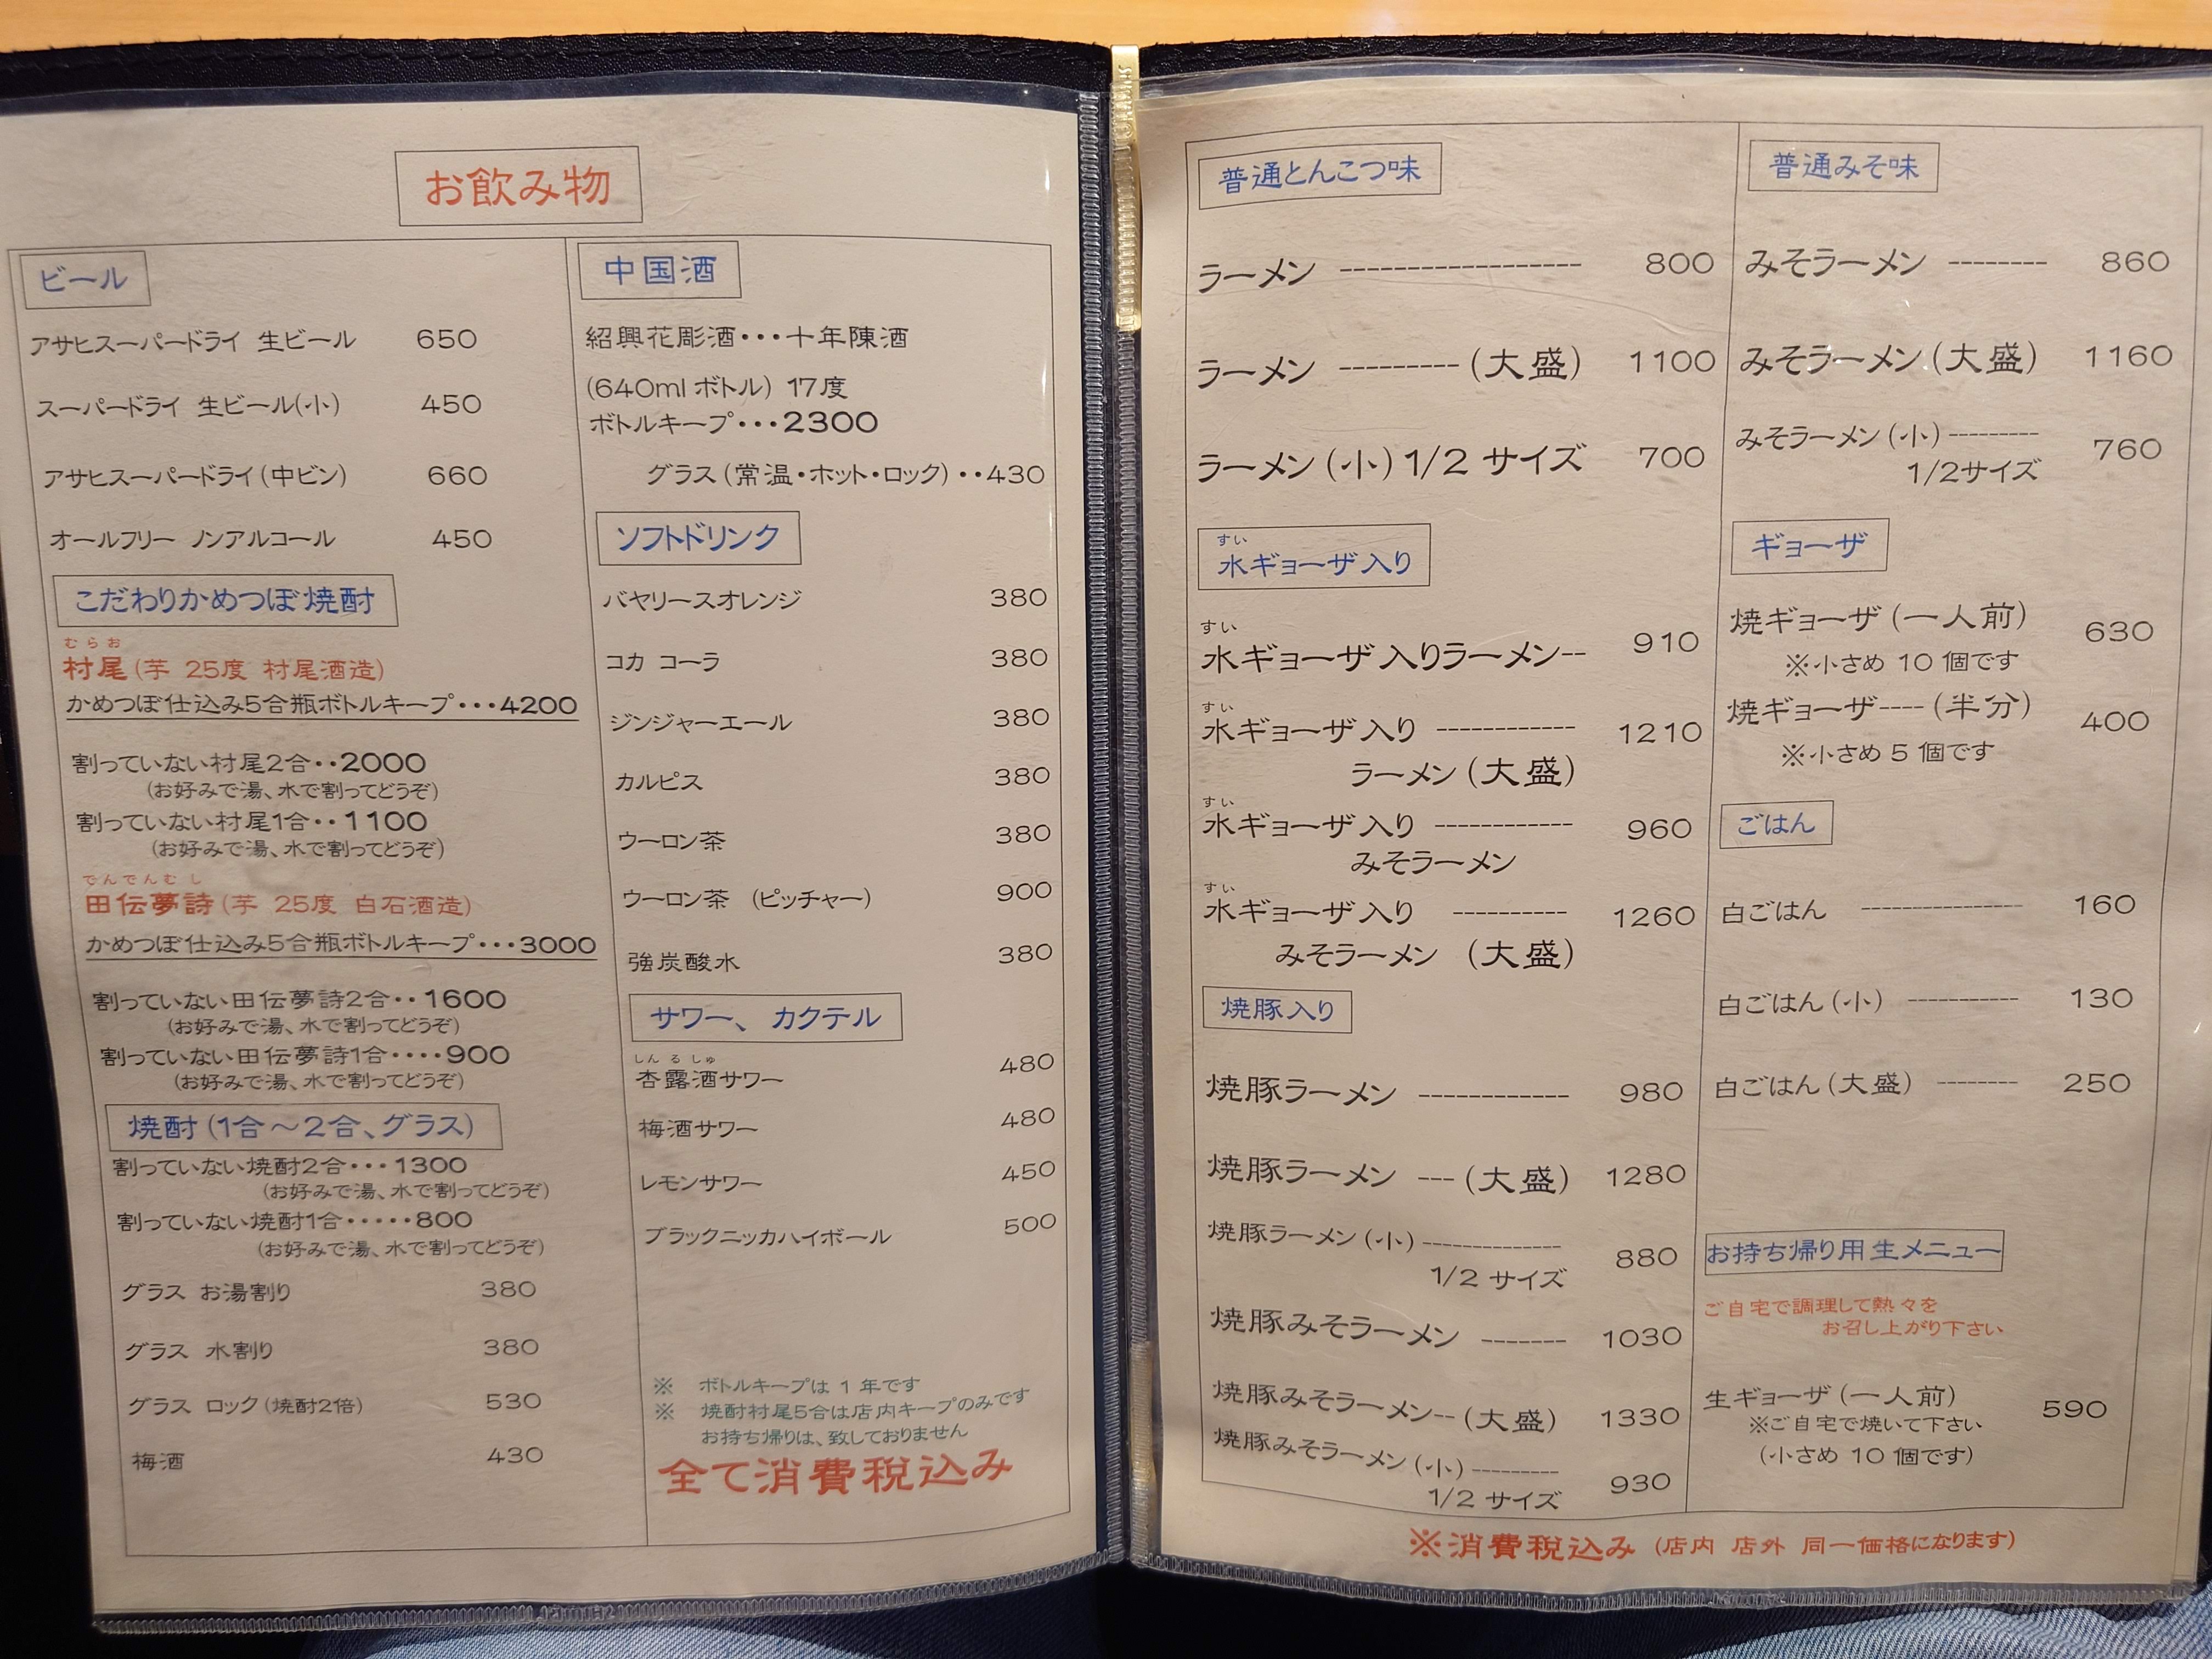 お飲み物
ビール
アサヒスーパードライ 生ビール 650
スーパードライ 生ビール(小) 450
アサヒスーパードライ(中ビン) 660
オールフリー ノンアルコール 450
こだわりかめつぼ焼酎
むらお
村尾(芋 25度 村尾酒造)
かめつぼ仕込み5合瓶ボトルキープ・・・4200
割っていない村尾2合・・2000
(お好みで湯、水で割ってどうぞ)
割っていない村尾1合・・1100
(お好みで湯、水で割ってどうぞ)
でんでんむし
田伝夢詩(芋 25度 白石酒造)
かめつぼ仕込み5合瓶ボトルキープ・・・3000
割っていない田伝夢詩2合・・1600
(お好みで湯、水で割ってどうぞ)
割っていない田伝夢詩1合・・・・900
(お好みで湯、水で割ってどうぞ)
焼酎(1合～2合、グラス)
割っていない焼酎2合・・・1300
(お好みで湯、水で割ってどうぞ)
割っていない焼酎1合・・・・・800
(お好みで湯、水で割ってどうぞ)
グラス お湯割り 380
グラス 水割り 380
グラス ロック(焼酎2倍) 530
梅酒 430
中国酒
紹興花彫酒・・・十年陳酒
(640mlボトル) 17度
ボトルキープ・・・2300
グラス(常温・ホット・ロック)・・430
ソフトドリンク
バヤリースオレンジ 380
コカ コーラ 380
ジンジャーエール 380
カルピス 380
ウーロン茶 380
ウーロン茶 (ピッチャー) 900
強炭酸水 380
サワー、カクテル
しんるしゅ
杏露酒サワー 480
梅酒サワー 480
レモンサワー 450
ブラックニッカハイボール 500
※ ボトルキープは 1 年です
※ 焼酎村尾5合は店内キープのみです
お持ち帰りは、致しておりません
全て消費税込み
普通とんこつ味
ラーメン ------------------ 800
ラーメン ---------(大盛) 1100
ラーメン(小)1/2 サイズ 700
すい
水ギョーザ入り
すい
水ギョーザ入りラーメン-- 910
すい
水ギョーザ入り ------------ 1210
ラーメン(大盛)
すい
水ギョーザ入り ------------ 960
みそラーメン
すい
水ギョーザ入り ---------- 1260
みそラーメン (大盛)
焼豚入り
焼豚ラーメン ------------ 980
焼豚ラーメン ---(大盛) 1280
焼豚ラーメン(小)-------------- 880
1/2 サイズ
焼豚みそラーメン ------- 1030
焼豚みそラーメン--(大盛) 1330
焼豚みそラーメン(小)--------- 930
1/2 サイズ
普通みそ味
みそラーメン -------- 860
みそラーメン(大盛) 1160
みそラーメン(小)--------- 760
1/2サイズ
ギョーザ
焼ギョーザ(一人前) 630
※小さめ 10 個です
焼ギョーザ----(半分) 400
※小さめ 5 個です
ごはん
白ごはん ---------------- 160
白ごはん(小) ----------- 130
白ごはん(大盛) -------- 250
お持ち帰り用生メニュー
ご自宅で調理して熱々を
お召し上がり下さい
生ギョーザ(一人前) 590
※ご自宅で焼いて下さい
(小さめ 10 個です)
※消費税込み (店内 店外 同一価格になります)